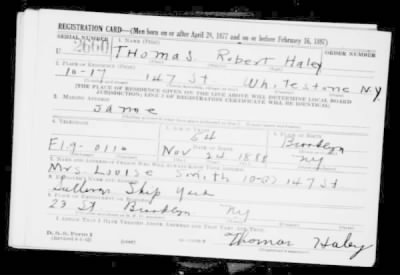 REGISTRATION CARD—(Men born on or after April 28, 1877 and on or before February 16, 1897)
SERIAL NUMBER 1. NAME (Print) ORDER NUMBER
U 2660 Thomas Robert Haley
2. PLACE OF RESIDENCE (Print)
10-17 147 St Whitestone N.Y.
[THE PLACE OF RESIDENCE GIVEN ON THE LINE ABOVE WILL DETERMINE LOCAL BOARD
JURISDICTION; LINE 2 OF REGISTRATION CERTIFICATE WILL BE IDENTICAL]
3. MAILING ADDRESS
Same
4. TELEPHONE
PLACE OF BIRTH
54 Brooklyn
Flg-0110 Nov 24 1888 NY
7. NAME AND ADDRESS OF PERSON WHO WILL ALWAYS KNOW YOUR ADDRESS
Mrs. Louise Smith 10-07 147 St
Sullivan Ship Yard
23 St Brooklyn NY
I AFFIRM THAT I HAVE VERIFIED ABOVE ANSWERS AND THAT THEY ARE TRUE.
D. S. S. Form 1
(over) Thomas Haley